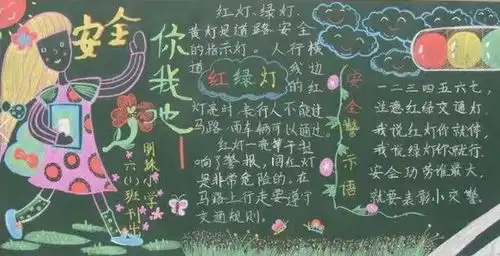 安全
你我他
明珠小学
六(1)班
红灯、绿灯、
黄灯是道路安全
的指示灯。人行横
道
边的红
红绿灯
灯亮时,表行人不能过
马路,而车辆可以通过。
红灯一亮等于拉
响了警报,闯红灯
是非常危险的。在
马路上行走要遵守
交通规则。
安全警示语
一二三四五六七,
注意红绿交通灯.
我说红灯你就停,
我说绿灯你就行.
安全功劳谁最大,
就要表彰小交警.